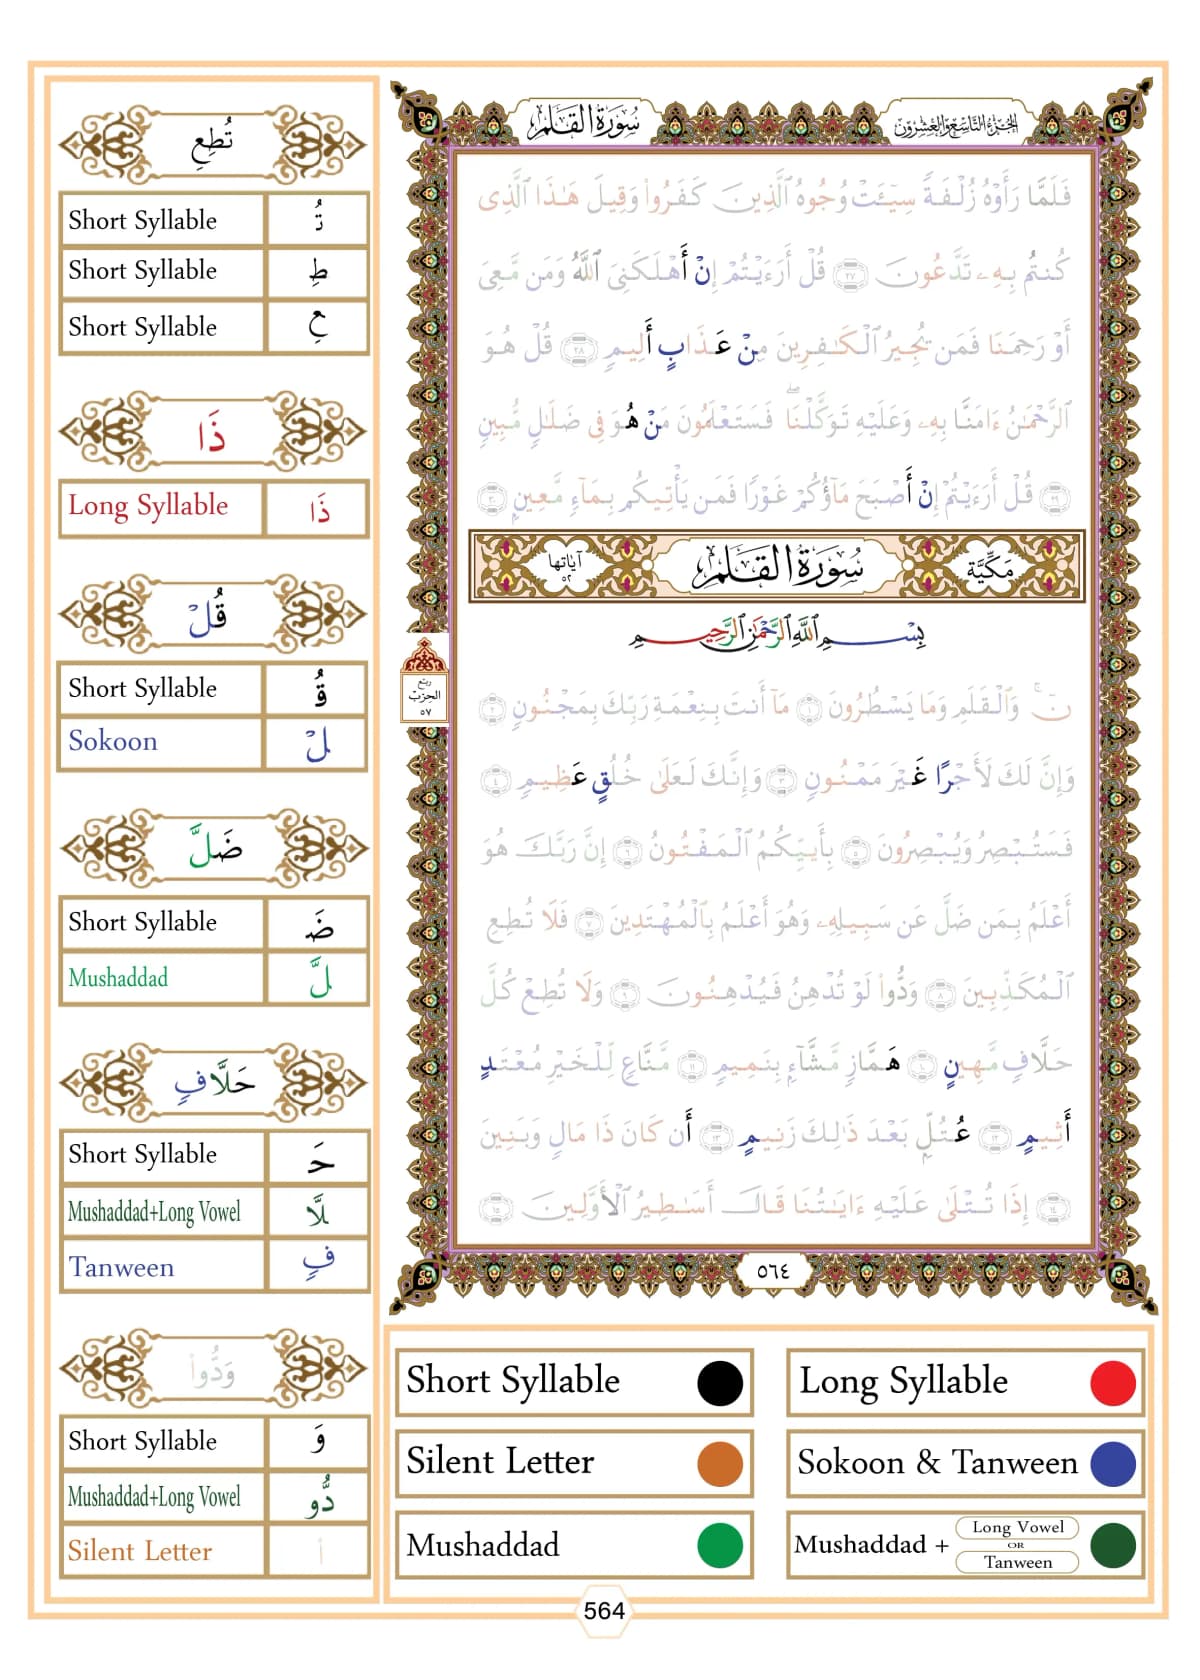 سُورَةُ القَلَمِ
الجُزْءُ التَّاسِعُ وَالعِشْرُونَ
فَلَمَّا رَأَوْهُ زُلْفَةً سِيٓـَٔتْ وُجُوهُ ٱلَّذِينَ كَفَرُوا۟ وَقِيلَ هَـٰذَا ٱلَّذِى
كُنتُم بِهِۦ تَدَّعُونَ ٢٧ قُلْ أَرَءَيْتُمْ إِنْ أَهْلَكَنِىَ ٱللَّهُ وَمَن مَّعِىَ
أَوْ رَحِمَنَا فَمَن يُجِيرُ ٱلْكَـٰفِرِينَ مِنْ عَذَابٍ أَلِيمٍ ٢٨ قُلْ هُوَ
ٱلرَّحْمَـٰنُ ءَامَنَّا بِهِۦ وَعَلَيْهِ تَوَكَّلْنَا ۖ فَسَتَعْلَمُونَ مَنْ هُوَ فِى ضَلَـٰلٍ مُّبِينٍ
٢٩ قُلْ أَرَءَيْتُمْ إِنْ أَصْبَحَ مَآؤُكُمْ غَوْرًا فَمَن يَأْتِيكُم بِمَآءٍ مَّعِينٍۭ ٣٠
مَكِّيَّة
سُورَةُ القَلَمِ
آيَاتها ٥٢
بِسْمِ ٱللَّهِ ٱلرَّحْمَـٰنِ ٱلرَّحِيمِ
نٓ ۚ وَٱلْقَلَمِ وَمَا يَسْطُرُونَ ١ مَآ أَنتَ بِنِعْمَةِ رَبِّكَ بِمَجْنُونٍ ٢
وَإِنَّ لَكَ لَأَجْرًا غَيْرَ مَمْنُونٍ ٣ وَإِنَّكَ لَعَلَىٰ خُلُقٍ عَظِيمٍ ٤
فَسَتُبْصِرُ وَيُبْصِرُونَ ٥ بِأَييِّكُمُ ٱلْمَفْتُونُ ٦ إِنَّ رَبَّكَ هُوَ
أَعْلَمُ بِمَن ضَلَّ عَن سَبِيلِهِۦ وَهُوَ أَعْلَمُ بِٱلْمُهْتَدِينَ ٧ فَلَا تُطِعِ
ٱلْمُكَذِّبِينَ ٨ وَدُّوا۟ لَوْ تُدْهِنُ فَيُدْهِنُونَ ٩ وَلَا تُطِعْ كُلَّ
حَلَّافٍ مَّهِينٍ ١٠ هَمَّازٍ مَّشَّآءٍۭ بِنَمِيمٍ ١١ مَّنَّاعٍ لِّلْخَيْرِ مُعْتَدٍ
أَثِيمٍ ١٢ عُتُلٍّۭ بَعْدَ ذَٰلِكَ زَنِيمٍ ١٣ أَن كَانَ ذَا مَالٍ وَبَنِينَ
١٤ إِذَا تُتْلَىٰ عَلَيْهِ ءَايَـٰتُنَا قَالَ أَسَـٰطِيرُ ٱلْأَوَّلِينَ ١٥
٥٦٤
ربع
الحزب
٥٧
تُطِعِ
Short Syllable تُ
Short Syllable طِ
Short Syllable عِ
ذَا
Long Syllable ذَا
قُلْ
Short Syllable قُ
Sokoon لْ
ضَلَّ
Short Syllable ضَ
Mushaddad لَّ
حَلَّافٍ
Short Syllable حَ
Mushaddad+Long Vowel لَّا
Tanween فٍ
وَدُّوا۟
Short Syllable وَ
Mushaddad+Long Vowel دُّو
Silent Letter ا
Short Syllable
Long Syllable
Silent Letter
Sokoon & Tanween
Mushaddad
Mushaddad + Long Vowel OR Tanween
564